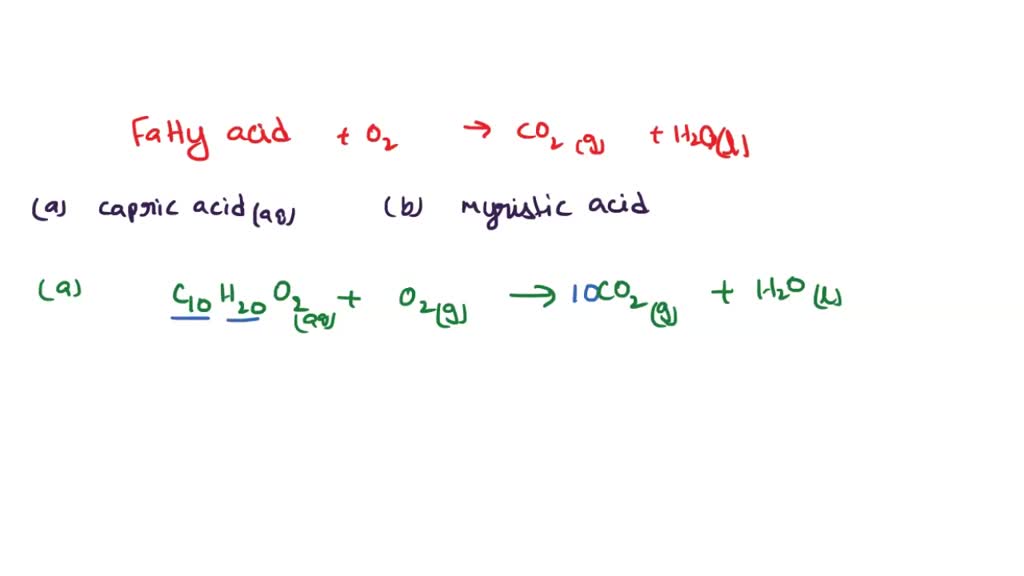 Fatty acid + O2 → CO2 (g) + H2O(l)
(a) capric acid (aq) (b) myristic acid
(a) C10 H20 O2 (aq) + O2(g) → 10CO2 (g) + H2O (l)